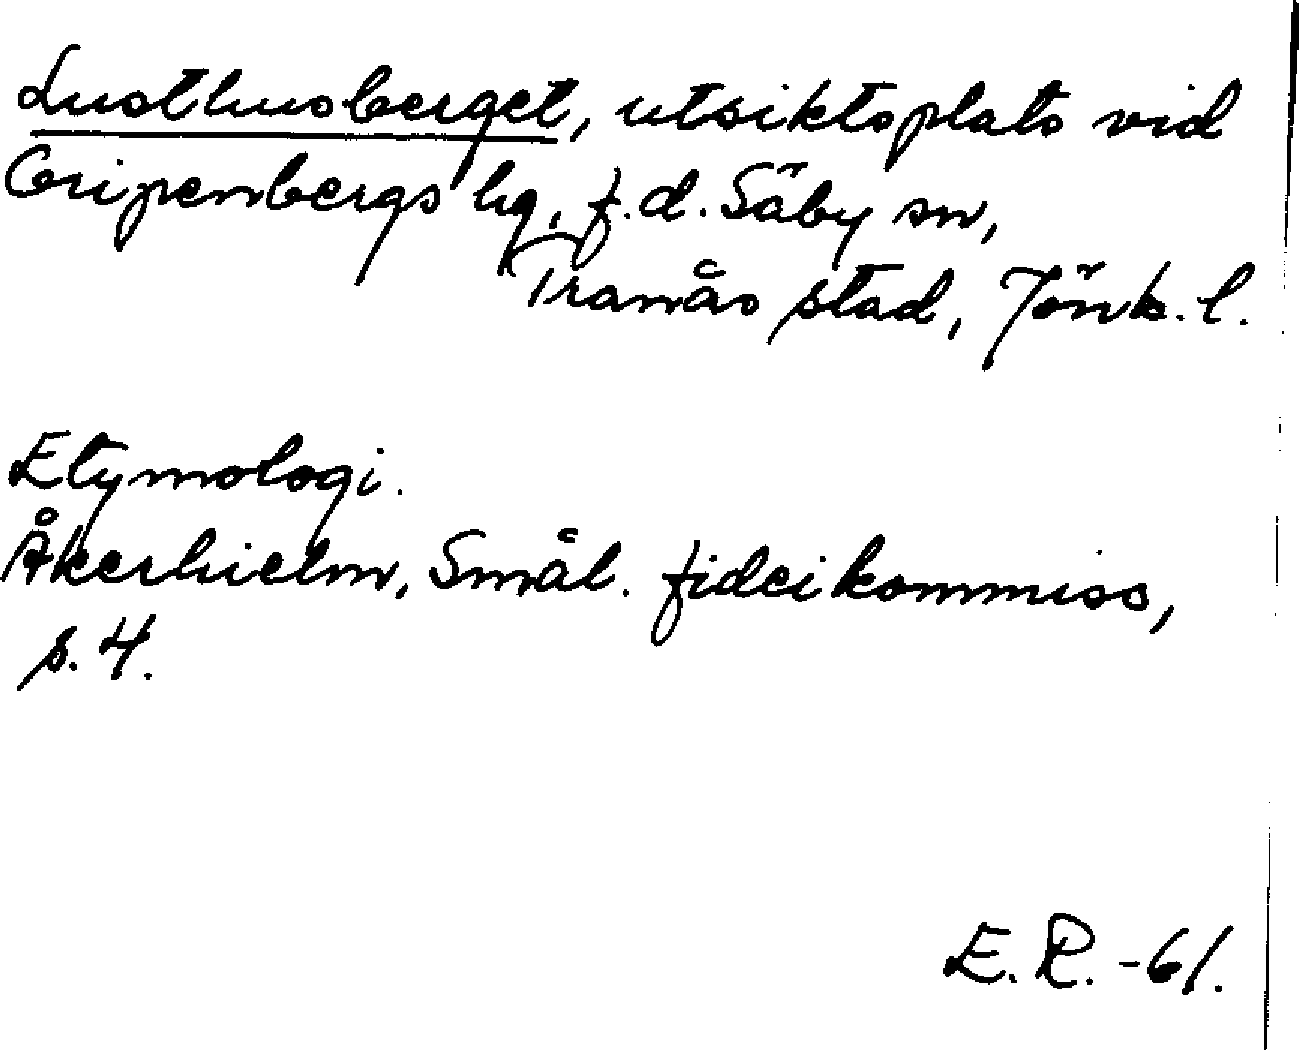 Lusthusberget, utsiktsplats vid
Gripenbergs hg, f.d. Säby sn,
Tranås stad, Jönk. l.
Etymologi.
Åkerhielm, Smål. fideikommiss,
s. 4.
E.R. -61.